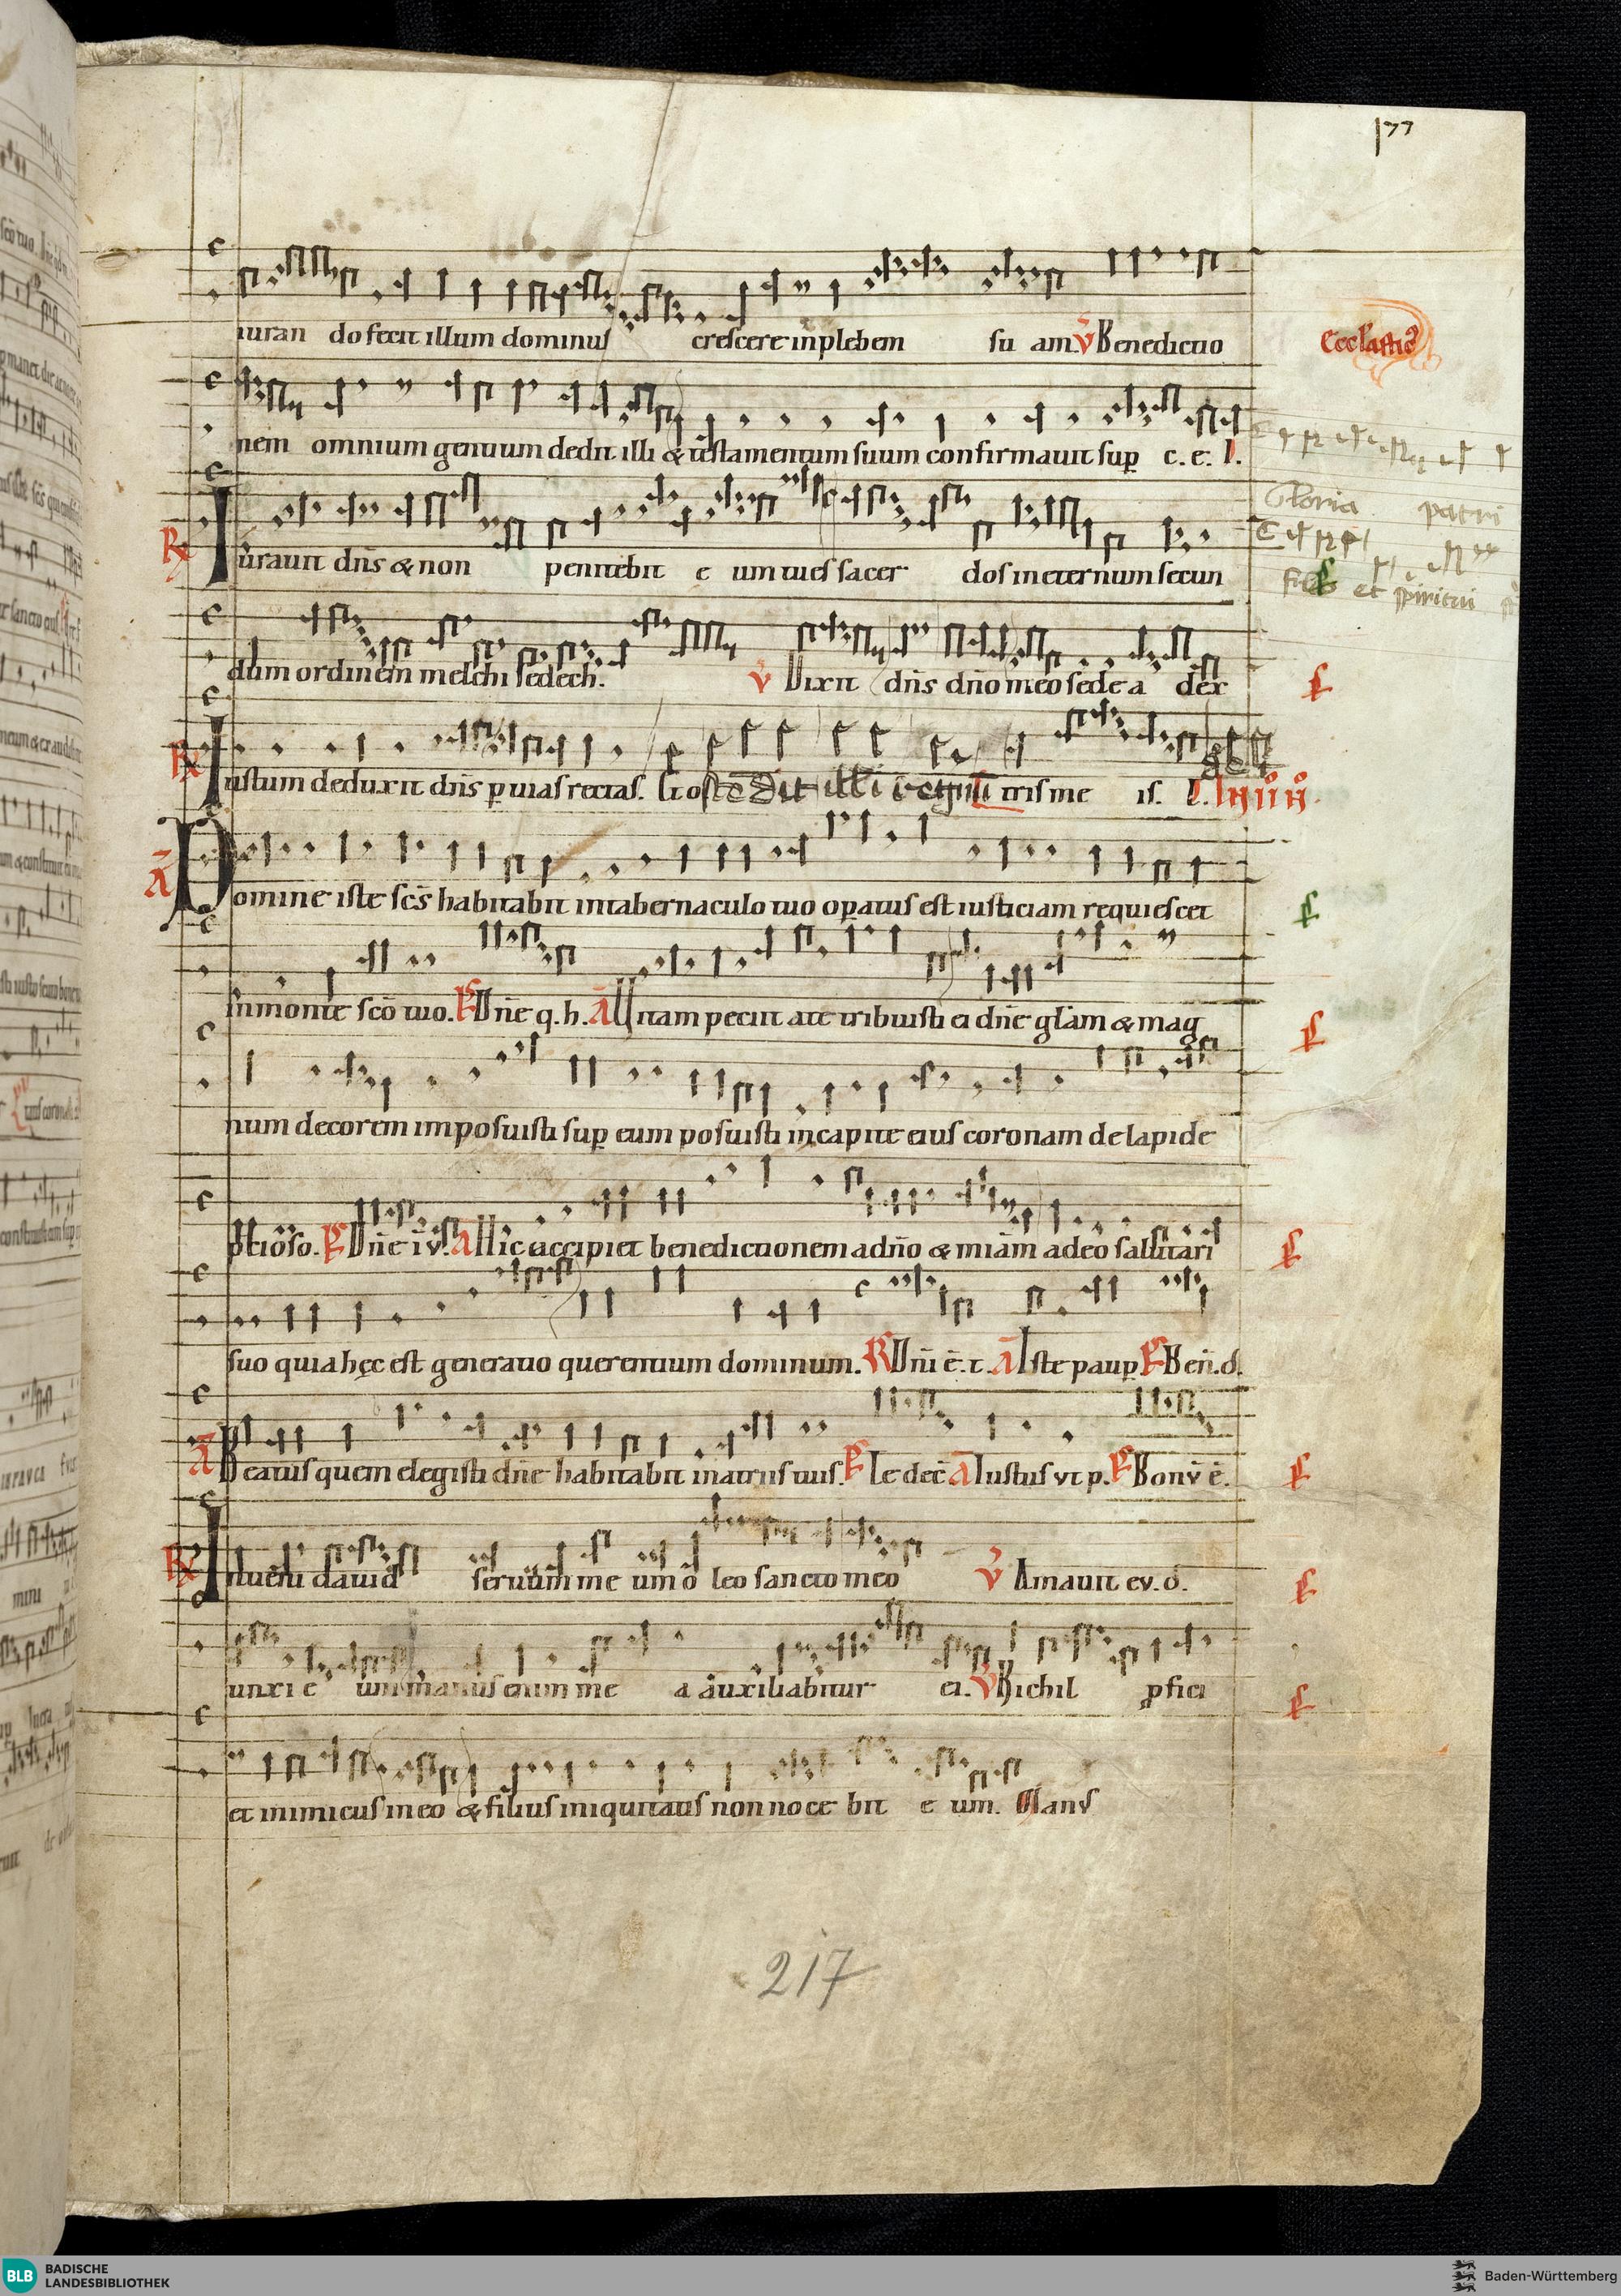 177
iuran do fecit illum dominus crescere in plebem su am. v̄ Benedictio
Eccl'astic9
nem omnium gentium dedit illi & testamentum suum confirmauit sup c. e. I.
Gloria patri
R Iurauit dn̄s & non penitebit e um tu es sacer dos in eternum secun
et spiritui
dum ordinem melchi sedech. v̄ Dixit dn̄s dn̄o meo sede a dex
R Iustum deduxit dn̄s p uias rectas. Et ostendit illi tris me is.
Ā Domine iste sc̄s habitabit in tabernaculo tuo opatus est iusticiam requiescet
in monte sc̄o tuo. P Dn̄e q. h. Ā Uitam peciit a te tribuisti ei dn̄e gl̄am & mag
num decorem imposuisti sup eum posuisti in capite eius coronam de lapide
ptioso. P Dn̄e ī v. Ā Hic accipiet benedictionem a dn̄o & mīam a deo salutari
suo quia hęc est generatio querentium dominum. R Dn̄i ē. t. Ā Iste paup. P Ben̄. d.
Ā Beatus quem elegisti dn̄e habitabit in atriis tuis. P Te dec̄ Ā Iustus vt p. P Bonv̄ ē.
R Inueni dauid seruum me um o leo sancto meo v̄ Amauit ev. d.
unxi e um manus enim me a auxiliabitur ei. v̄ Nichil pfici
et inimicus in eo & filius iniquitatis non noce bit e um. Manv̄
217
BLB BADISCHE
LANDESBIBLIOTHEK
Baden-Württemberg